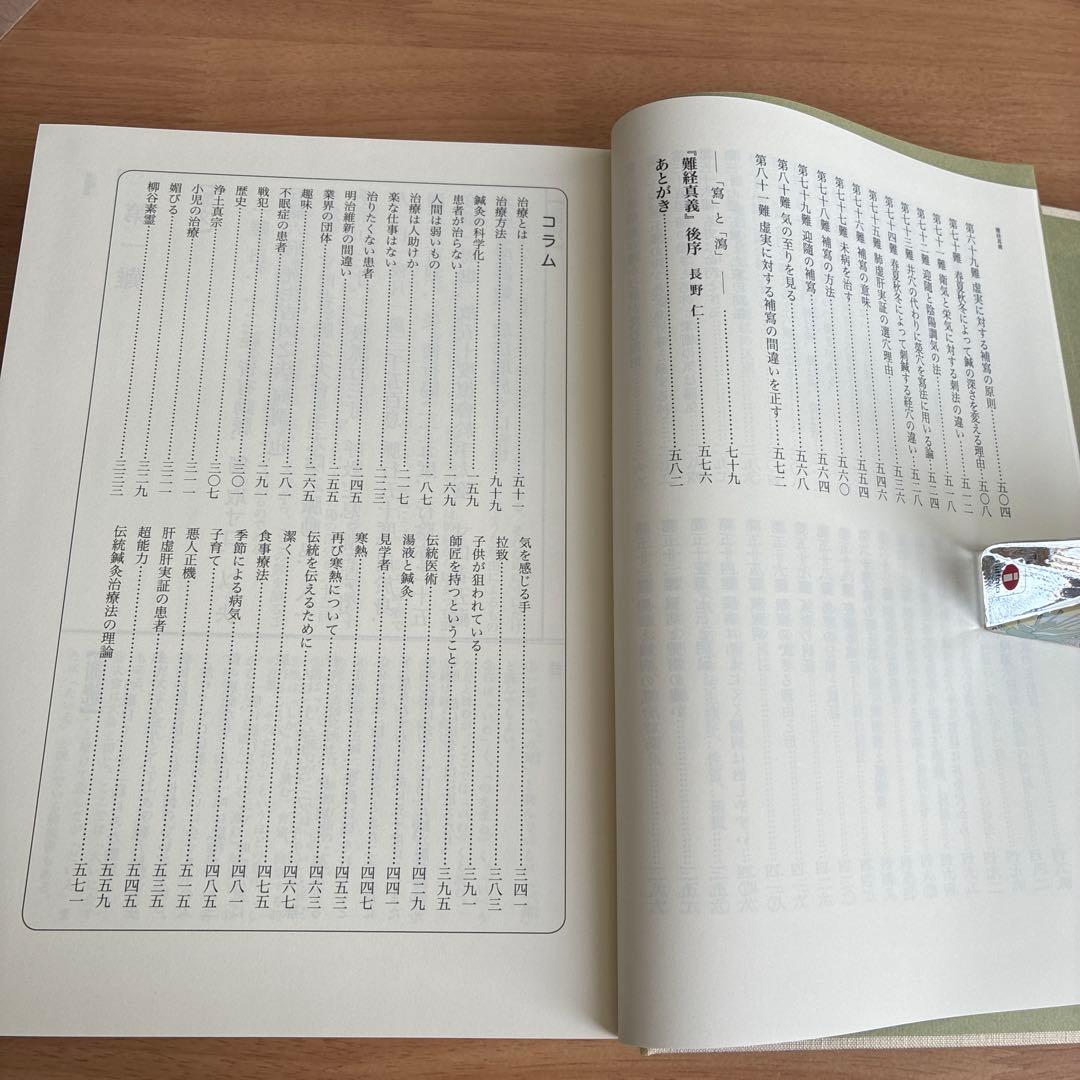 難経真義
第六十九難 虚実に対する補寫の原則……五〇四
第七十難 春夏秋冬によって鍼の深さを変える理由……五〇八
第七十一難 衛気と栄気に対する刺法の違い……五一二
第七十二難 迎随と陰陽調気の法……五一八
第七十三難 井穴の代わりに滎穴を寫法に用いる論……五二四
第七十四難 春夏秋冬によって刺鍼する経穴の違い……五二八
第七十五難 肺虚肝実証の選穴理由……五三六
第七十六難 補寫の意味……五四六
第七十七難 未病を治す……五五四
第七十八難 補寫の方法……五六〇
第七十九難 迎随の補寫……五六四
第八十難 気の至りを見る……五六八
第八十一難 虚実に対する補寫の間違いを正す……五七二
――「寫」と「瀉」――……七十九
『難経真義』後序 長野 仁……五七六
あとがき……五八二
コラム
治療とは……五十一
治療方法……九十九
鍼灸の科学化……一五九
患者が治らない……一六九
人間は弱いもの……一八七
治療は人助けか……二一七
楽な仕事はない……二二三
治りたくない患者……二四五
明治維新の間違い……二五五
業界の団体……二六五
趣味……二八一
不眠症の患者……二九一
戦犯……三〇一
歴史……三〇七
浄土真宗……三一一
小児の治療……三二一
媚びる……三二九
柳谷素霊……三三三
気を感じる手……三四一
拉致……三八三
子供が狙われている……三九一
師匠を持つということ……三九五
伝統医術……四二九
湯液と鍼灸……四四一
見学者……四四七
寒熱……四五三
再び寒熱について……四六三
伝統を伝えるために……四六七
潔く……四七五
食事療法……四八一
季節による病気……四八五
子育て……五一五
悪人正機……五三五
肝虚肝実証の患者……五四五
超能力……五五九
伝統鍼灸治療法の理論……五七一